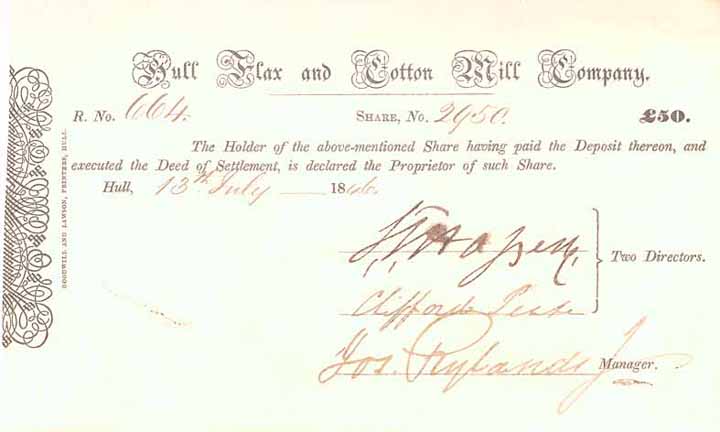 Hull Flax and Cotton Mill Company.
R. No. 664. SHARE, No. 2950. £50.
The Holder of the above-mentioned Share having paid the Deposit thereon, and
executed the Deed of Settlement, is declared the Proprietor of such Share.
Hull, 13th July 1846
Two Directors.
Clifford Pease
Jos. Rylands Jr Manager.
GOODWILL AND LAWSON, PRINTERS, HULL.